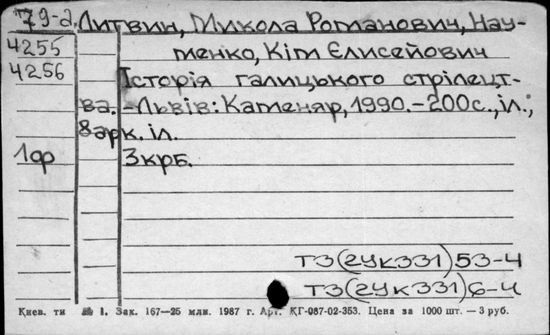 79-2. Литвин, Микола Романович, Нау-
4255 менко, Кім Єлисейович
4256 Історія галицького стрілецт-
ва. – Львів: Каменяр, 1990. – 200с., іл.,
8 арк. іл.
1ф 3крб.
ТЗ(2УК331)53-4
ТЗ(2УК331)6-4
Києв. ти 1. Зак. 167—25 млн. 1987 г. Арт. КГ-087-02-353. Цена за 1000 шт. — 3 руб.